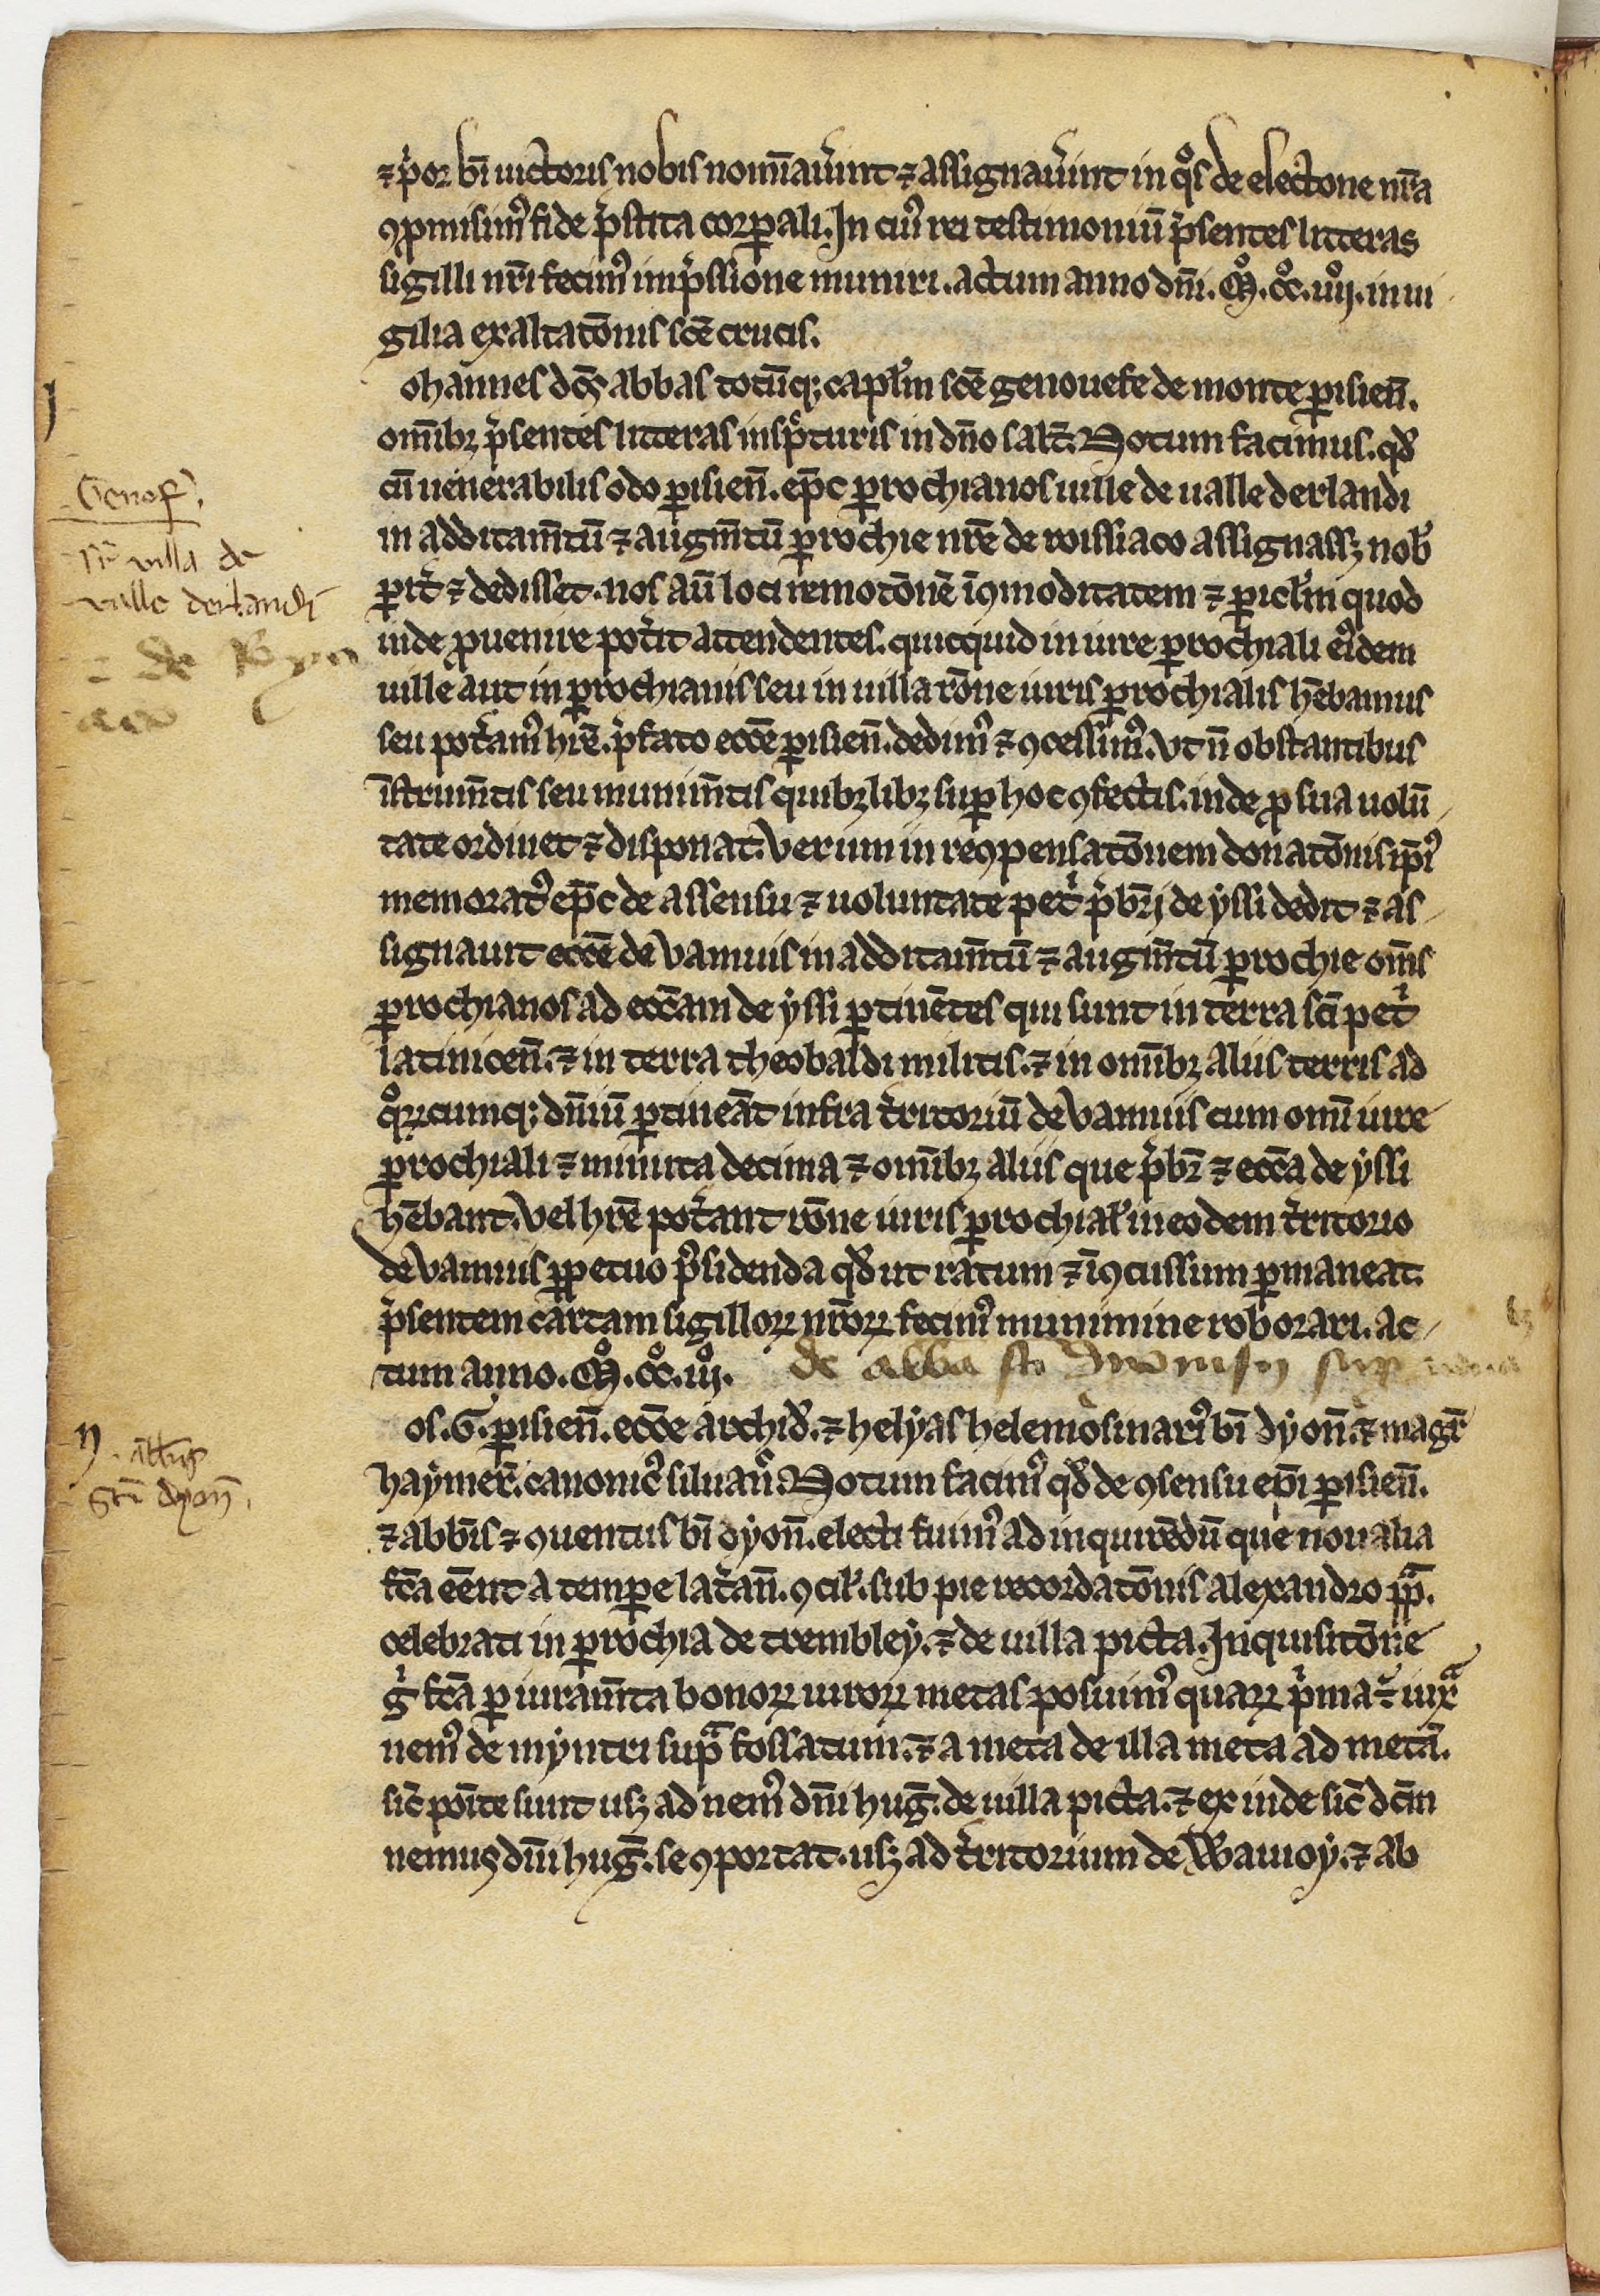 ⁊ p̾or bī uictoris nobis nomīau̾int ⁊ assignau̾int in qͦs de electōne nr̄a
ꝯp̄misimꝰ fide p̾stita corꝑali. In cuiꝰ rei testimoniū p̾sentes litteras
sigilli nr̄i fecimꝰ imp̾ssione muniri. actum anno dn̄i. Mͦ. ccͦ. iiijͦ. in ui
gilia exaltatōnis scē crucis.
ohannes dc̄s abbas totūq; capl̾m scē genouefe de monte ꝑisien̄.
om̄ibꝫ p̾sentes litteras insp̾cturis in dn̄o salt̄. Notum facimus. qd̾
cū uenerabilis odo ꝑisien̄. ep̄c ꝑrochianos uille de ualle derlandi
in additam̄tū ⁊ augm̄tū ꝑrochie nr̄e de roissiaco assignassꝫ nob̾
ꝑit̾ ⁊ dedisset. nos aū loci remotōnē īꝯmoditatem ⁊ ꝑicl̾m quod
inde ꝓuenire pot̾it attendentes. quicquid in iure ꝑrochiali eiꝰdem
uille aut in ꝑrochianis seu in uilla rōne iuris ꝑrochialis hēbamus
seu pot̾amꝰ hr̄e. p̾fato eccē ꝑisien̄. dedimꝰ ⁊ ꝯcessimꝰ. vt n̄ obstantibus
īstrum̄tis seu munim̄tis quibꝫlibꝫ suꝑ hoc ꝯfectis. inde ꝓ sua uolū
tate ordinet ⁊ disponat. Verum in reꝯpensatōnem donatōnis ip̄iꝰ
memoratꝰ ep̄c de assensu ⁊ uoluntate pet̾ p̾br̄i de yssi dedit ⁊ as
signauit eccē de vanuis in additam̄tū ⁊ augm̄tū ꝑrochie om̄s
ꝑrochianos ad eccām de yssi ꝑtinētes qui sunt in terra sc̄i pet̾
latinicen̄. ⁊ in terra theobaldi militis. ⁊ in om̄ibꝫ aliis terris ad
qͦꝝcumq; dn̄iū ꝑtineāt infra t̾ritoriū de vanuis cum om̄i iure
ꝑrochiali ⁊ minuta decima ⁊ om̄ibꝫ aliis que p̾br̄ ⁊ eccā de yssi
hēbant. vel hr̄e pot̾ant rōne iuris ꝑrochial̾ in eodem t̾ritorio
de vanuis ꝑpetuo p̾sidenda qd̾ ut ratum ⁊ īꝯcussum ꝑmaneat.
p̾sentem cartam sigilloꝝ nr̄oꝝ fecimꝰ munimine roborari. ac
tum anno. Mͦ. ccͦ. iijͦ. de abba sti
os. G. ꝑisien̄. eccē archid̾. ⁊ helyas helemosinariꝰ bī dyon̄. ⁊ magr̄
haymer̄. canonicꝰ siluan̾. Notum facimꝰ qd̾ de ꝯsensu ep̄i ꝑisien̄.
⁊ abb̄is ⁊ ꝯuentus bī dyon̄. electi fuimꝰ ad inquirēdū que noualia
fcā eēnt a temꝑe lat̾an̄. ꝯcil̾. sub pie recordatōnis alexandro pp̄.
celebrati in ꝑrochia de trembley. ⁊ de uilla picta. Inquisitōne
gͥ fcā ꝑ iuram̄ta bonoꝝ uiroꝝ metas posuimꝰ quaꝝ p̾ma ÷ iuxᵃ
nemꝰ de myntri supᵃ fossatum. ⁊ a meta de illa meta ad metā.
sic̄ poīte sunt usꝫ ad nemꝰ dn̄i hug̾. de uilla picta. ⁊ ex inde sic̄ dc̄m
nemus dn̄i hug̾. se ꝯportat. usꝫ ad t̾ritorium de Wauioy. ⁊ ab
J
Genof.
sr̄ villa de
valle derlandi
de
n. abbīs
Scī dyon̄.